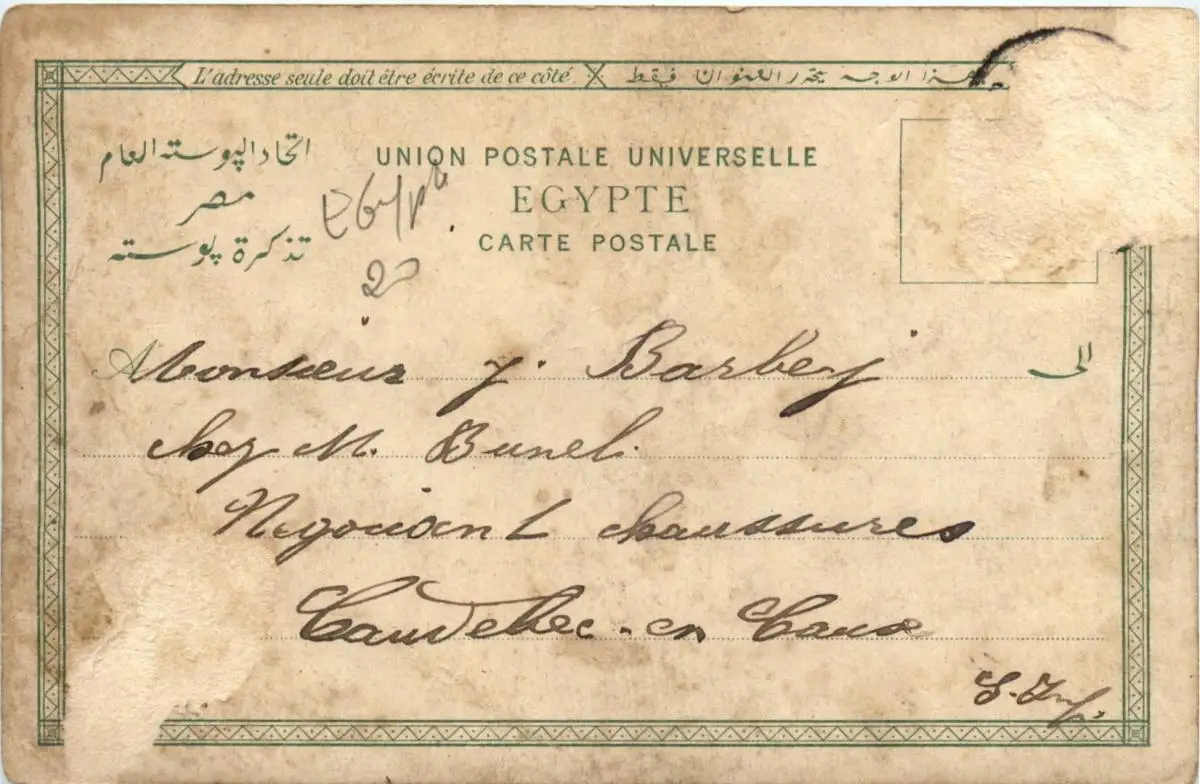 L'adresse seule doit être écrite de ce côté. هذا الوجه يحرر العنوان فقط
اتحاد البوسته العام
مصر
تذكرة بوسته
UNION POSTALE UNIVERSELLE
EGYPTE
CARTE POSTALE
Egypte
20
الى
Monsieur J. Barbey
chez M. Bunel.
Négociant chaussures
Caudebec-en Caux
S-Inf.